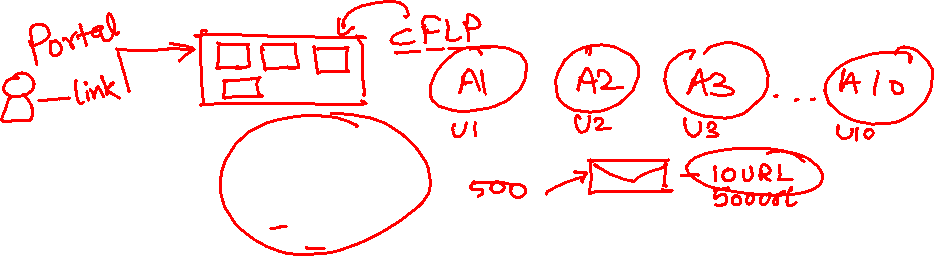 Portal
link
CFLP
A1 A2 A3 ... A10
U1 U2 U3 U10
500
10URL